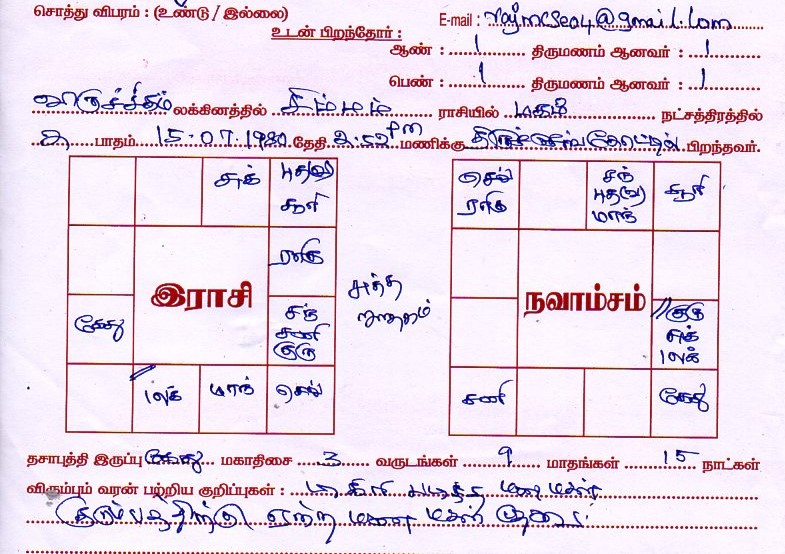 சொத்து விபரம் : (உண்டு / இல்லை)
E-mail : rajmcse04@gmail.com
உடன் பிறந்தோர் :
ஆண் : 1 திருமணம் ஆனவர் : 1
பெண் : 1 திருமணம் ஆனவர் : 1
விருச்சிகம் லக்கினத்தில் சிம்மம் ராசியில் மகம் நட்சத்திரத்தில்
பாதம் 15-07-1980 தேதி 2:52 pm மணிக்கு பிறந்தவர்.
சுக் புதன் சூரி
ராகு
கேது
சந் சனி குரு
லக் மாந் செவ்
இராசி
சுத்த ஜாதகம்
செவ் ராகு
சந் புதன் மாந்
சூரி
நவாம்சம்
குரு சுக் லக்
சனி
கேது
தசாபுத்தி இருப்பு கேது மகாதிசை 3 வருடங்கள் 9 மாதங்கள் 15 நாட்கள்
விரும்பும் வரன் பற்றிய குறிப்புகள் : படித்த மணமகள்
குடும்பத்திற்கு ஏற்ற மண மகள் தேவை